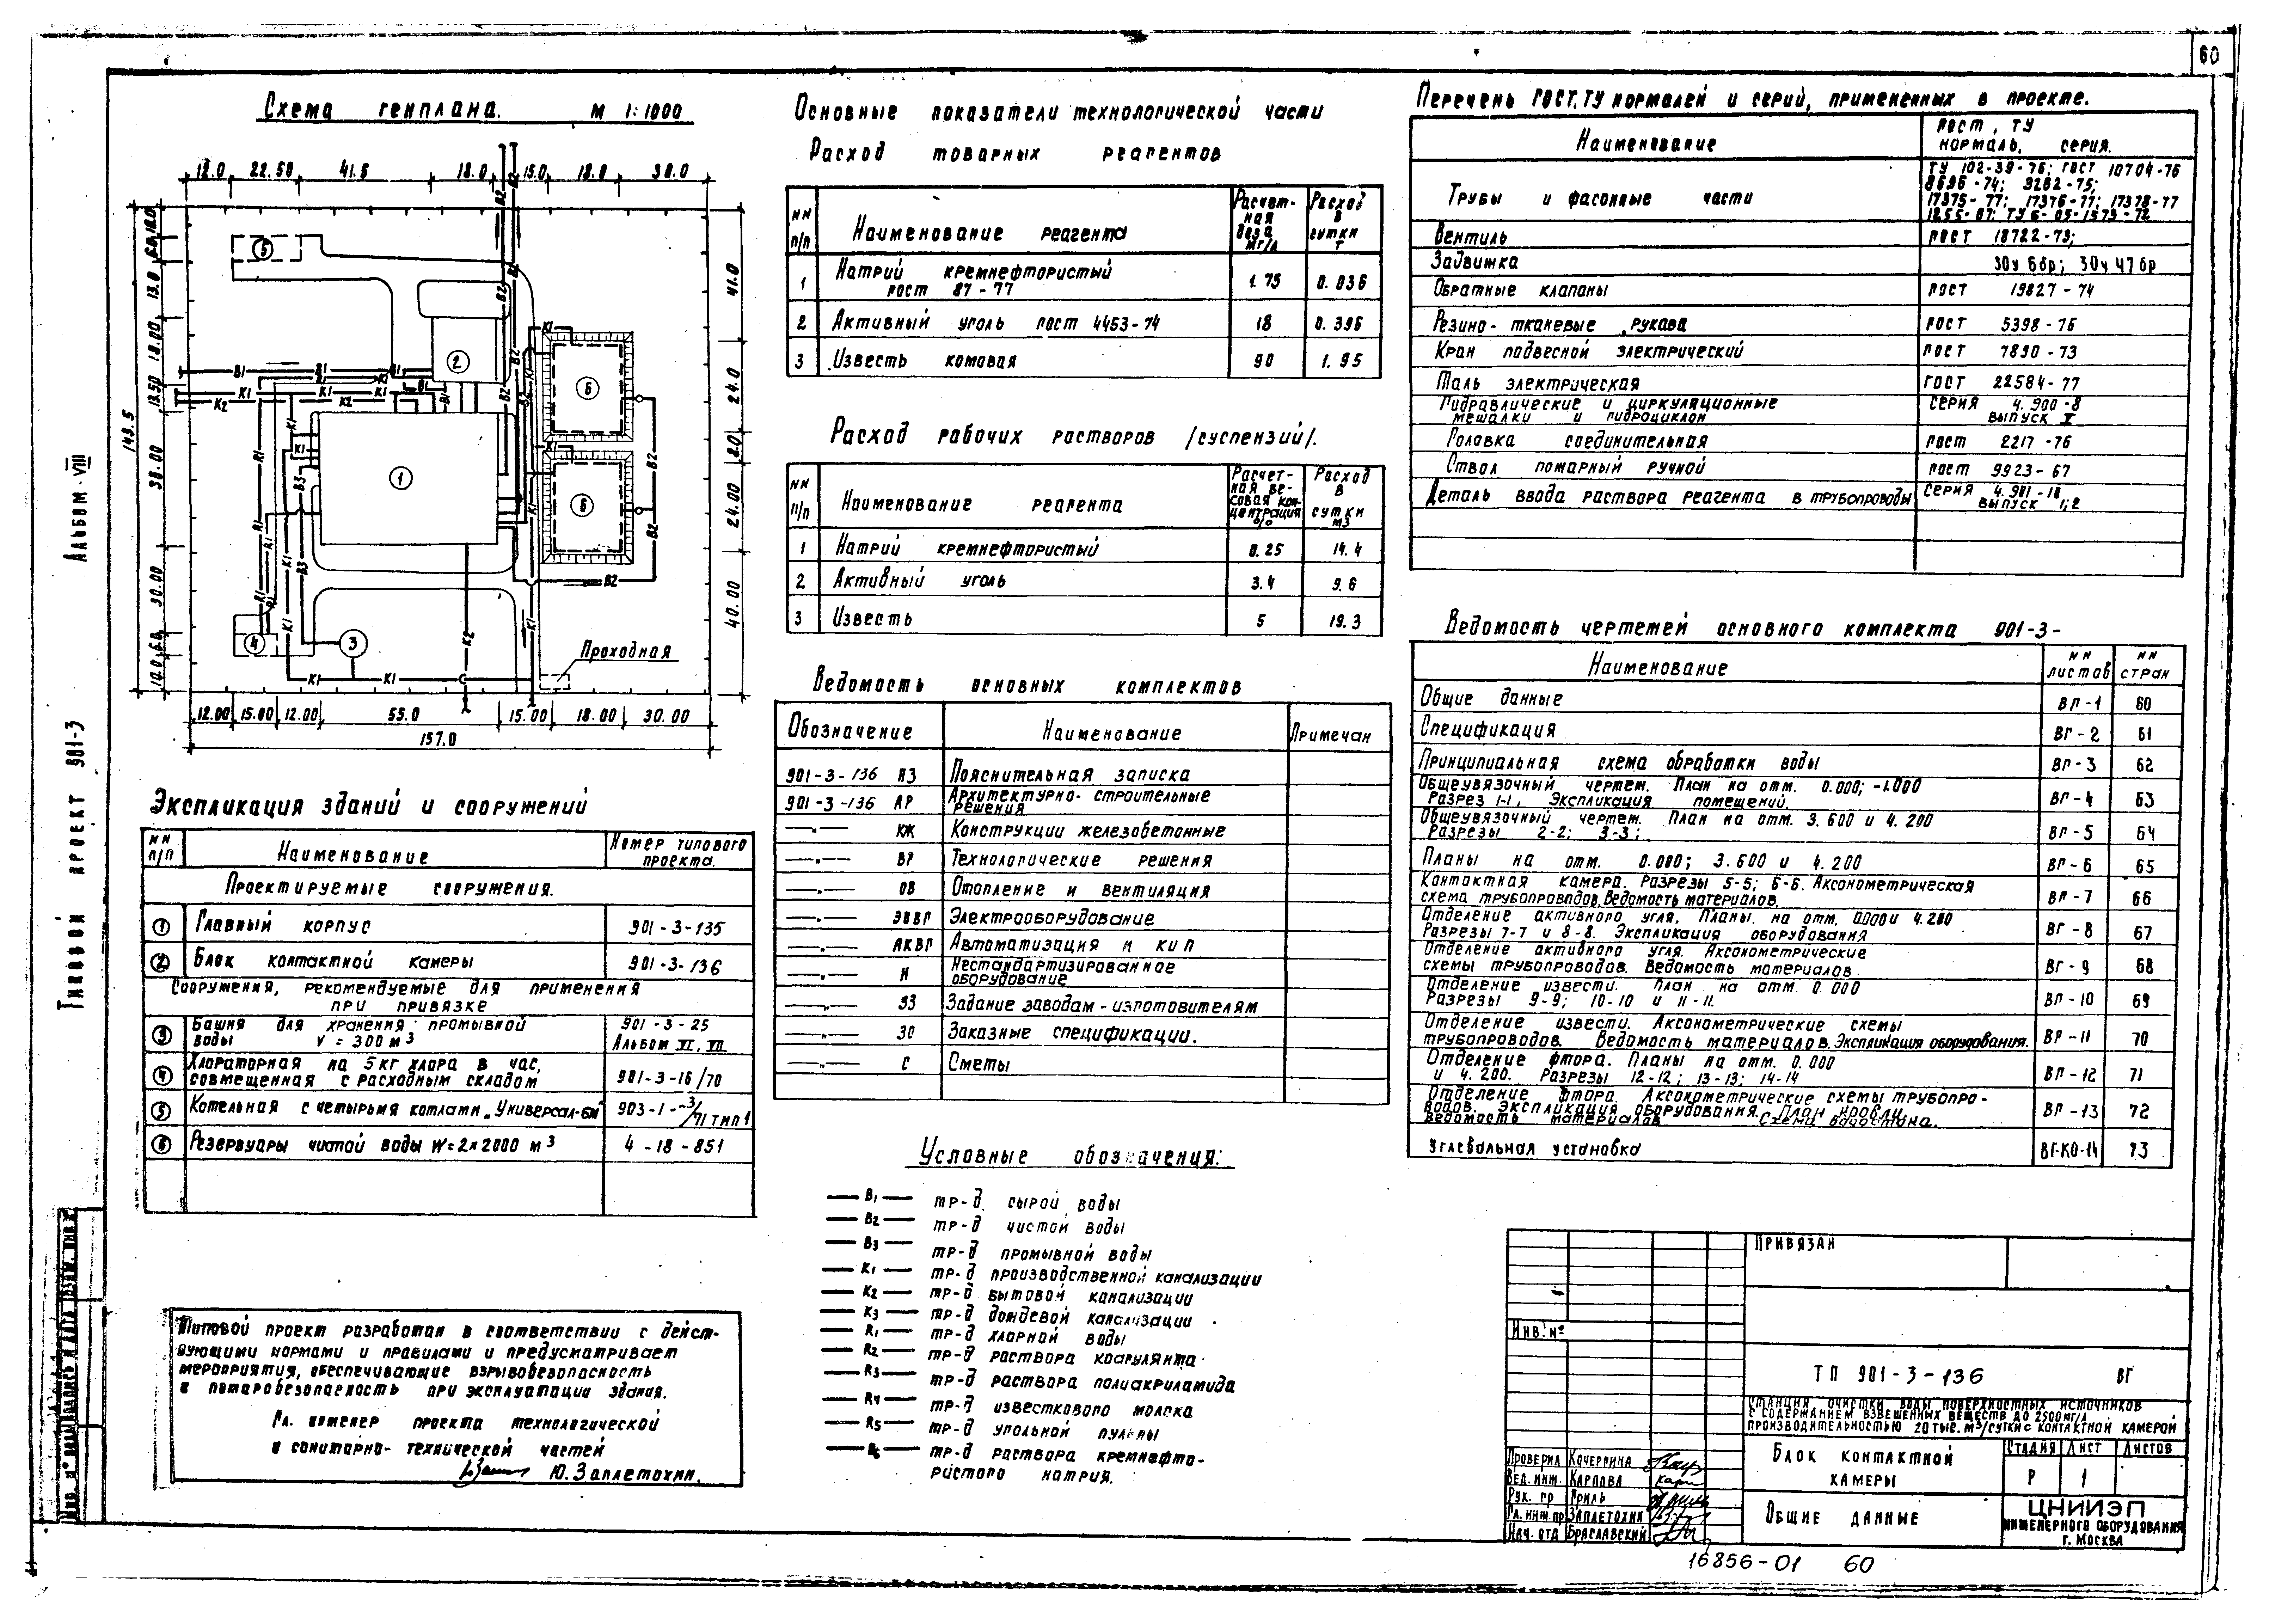 60
Схема генплана. М 1:1000
12.0 22.50 41.5 18.0 15.0 18.0 30.0
149.5
41.0
24.0
8.0
24.00
40.00
13.0
18.00
13.50
38.00
30.00
Проходная
12.00 15.00 12.00 55.0 15.00 18.00 30.00
157.0
Альбом-VIII
Типовой проект 901-3
Экспликация зданий и сооружений
НН п/п Наименование Номер типового проекта.
Проектируемые сооружения.
1 Главный корпус 901-3-135
2 Блок контактной камеры 901-3-136
Сооружения, рекомендуемые для применения
при привязке
3 Башня для хранения промывной 901-3-25
воды V = 300 м3 Альбом VI, VII
4 Хлораторная на 5 кг хлора в час,
совмещенная с расходным складом 901-3-16/70
5 Котельная с четырьмя котлами „Универсал-6м" 903-1-3/71 тип 1
6 Резервуары чистой воды W=2x2000 м3 4-18-851
Типовой проект разработан в соответствии с дейст-
вующими нормами и правилами и предусматривает
мероприятия, обеспечивающие взрывобезопасность
и пожаробезопасность при эксплуатации здания.
Гл. инженер проекта технологической
и санитарно-технической частей
Ю. Заплетохин.
Основные показатели технологической части
Расход товарных реагентов
НН п/п Наименование реагента Расчет-ная доза мг/л Расход в сутки т
1 Натрий кремнефтористый 1.75 0.036
гост 87-77
2 Активный уголь гост 4453-74 18 0.396
3 Известь комовая 90 1.95
Расход рабочих растворов /суспензий/.
НН п/п Наименование реагента Расчет-ная ве-совая кон-центрация % Расход в сутки м3
1 Натрий кремнефтористый 0.25 14.4
2 Активный уголь 3.4 9.6
3 Известь 5 19.3
Ведомость основных комплектов
Обозначение Наименование Примечан
901-3-136 ПЗ Пояснительная записка
901-3-136 АР Архитектурно-строительные
решения
—"— КЖ Конструкции железобетонные
—"— ВГ Технологические решения
—"— ОВ Отопление и вентиляция
—"— ЭВВГ Электрооборудование
—"— АКВГ Автоматизация и кип
—"— Н Нестандартизированное
оборудование
—"— ЗЗ Задание заводам-изготовителям
—"— ЗС Заказные спецификации.
—"— С Сметы
Условные обозначения:
В1 тр-д сырой воды
В2 тр-д чистой воды
В3 тр-д промывной воды
К1 тр-д производственной канализации
К2 тр-д бытовой канализации
К3 тр-д дождевой канализации
R1 тр-д хлорной воды
R2 тр-д раствора коагулянта
R3 тр-д раствора полиакриламида
R4 тр-д известкового молока
R5 тр-д угольной пульпы
R6 тр-д раствора кремнефто-
ристого натрия.
Перечень ГОСТ, ТУ нормалей и серий, примененных в проекте.
Наименование гост, ТУ
нормаль, серия.
Трубы и фасонные части ТУ 102-39-76; гост 10704-76
8696-74; 9262-75;
17375-77; 17376-77; 17378-77
1255-67; ТУ 6-05-1573-72
Вентиль гост 18722-73;
Задвижка 30ч 6бр; 30ч 47бр
Обратные клапаны гост 19827-74
Резино-тканевые рукава гост 5398-76
Кран подвесной электрический гост 7890-73
Таль электрическая гост 22584-77
Гидравлические и циркуляционные серия 4.900-8
мешалки и гидроциклон выпуск V
Головка соединительная гост 2217-76
Ствол пожарный ручной гост 9923-67
Деталь ввода раствора реагента в трубопроводы серия 4.901-18
выпуск 1;2
Ведомость чертежей основного комплекта 901-3-
Наименование НН листов НН стран
Общие данные ВГ-1 60
Спецификация ВГ-2 61
Принципиальная схема обработки воды ВГ-3 62
Общеувязочный чертеж. План на отм. 0.000; -1.000
Разрез 1-1, Экспликация помещений. ВГ-4 63
Общеувязочный чертеж. План на отм. 3.600 и 4.200
Разрезы 2-2; 3-3; ВГ-5 64
Планы на отм. 0.000; 3.600 и 4.200 ВГ-6 65
Контактная камера. Разрезы 5-5; 6-6. Аксонометрическая
схема трубопроводов. Ведомость материалов. ВГ-7 66
Отделение активного угля. Планы на отм. 0.000 и 4.200
Разрезы 7-7 и 8-8. Экспликация оборудования ВГ-8 67
Отделение активного угля. Аксонометрические
схемы трубопроводов. Ведомость материалов. ВГ-9 68
Отделение извести. План на отм. 0.000
Разрезы 9-9; 10-10 и 11-11. ВГ-10 69
Отделение извести. Аксонометрические схемы
трубопроводов. Ведомость материалов. Экспликация оборудования. ВГ-11 70
Отделение фтора. Планы на отм. 0.000
и 4.200. Разрезы 12-12; 13-13; 14-14 ВГ-12 71
Отделение фтора. Аксонометрические схемы трубопро-
водов. Экспликация оборудования. План кровли.
Ведомость материалов Схема водостока. ВГ-13 72
Углевальная установка ВГ-КО-14 73
Привязан
Инв. №
ТП 901-3-136 ВГ
Станция очистки воды поверхностных источников
с содержанием взвешенных веществ до 2500 мг/л
производительностью 20 тыс. м3/сутки с контактной камерой
Блок контактной
камеры
Стадия Лист Листов
Р 1
Общие данные
ЦНИИЭП
инженерного оборудования
г. Москва
Проверил Кочергина
Вед. инж. Карпова
Рук. гр Гриль
Гл. инж. пр Заплетохин
Нач. отд Браславский
16856-01 60